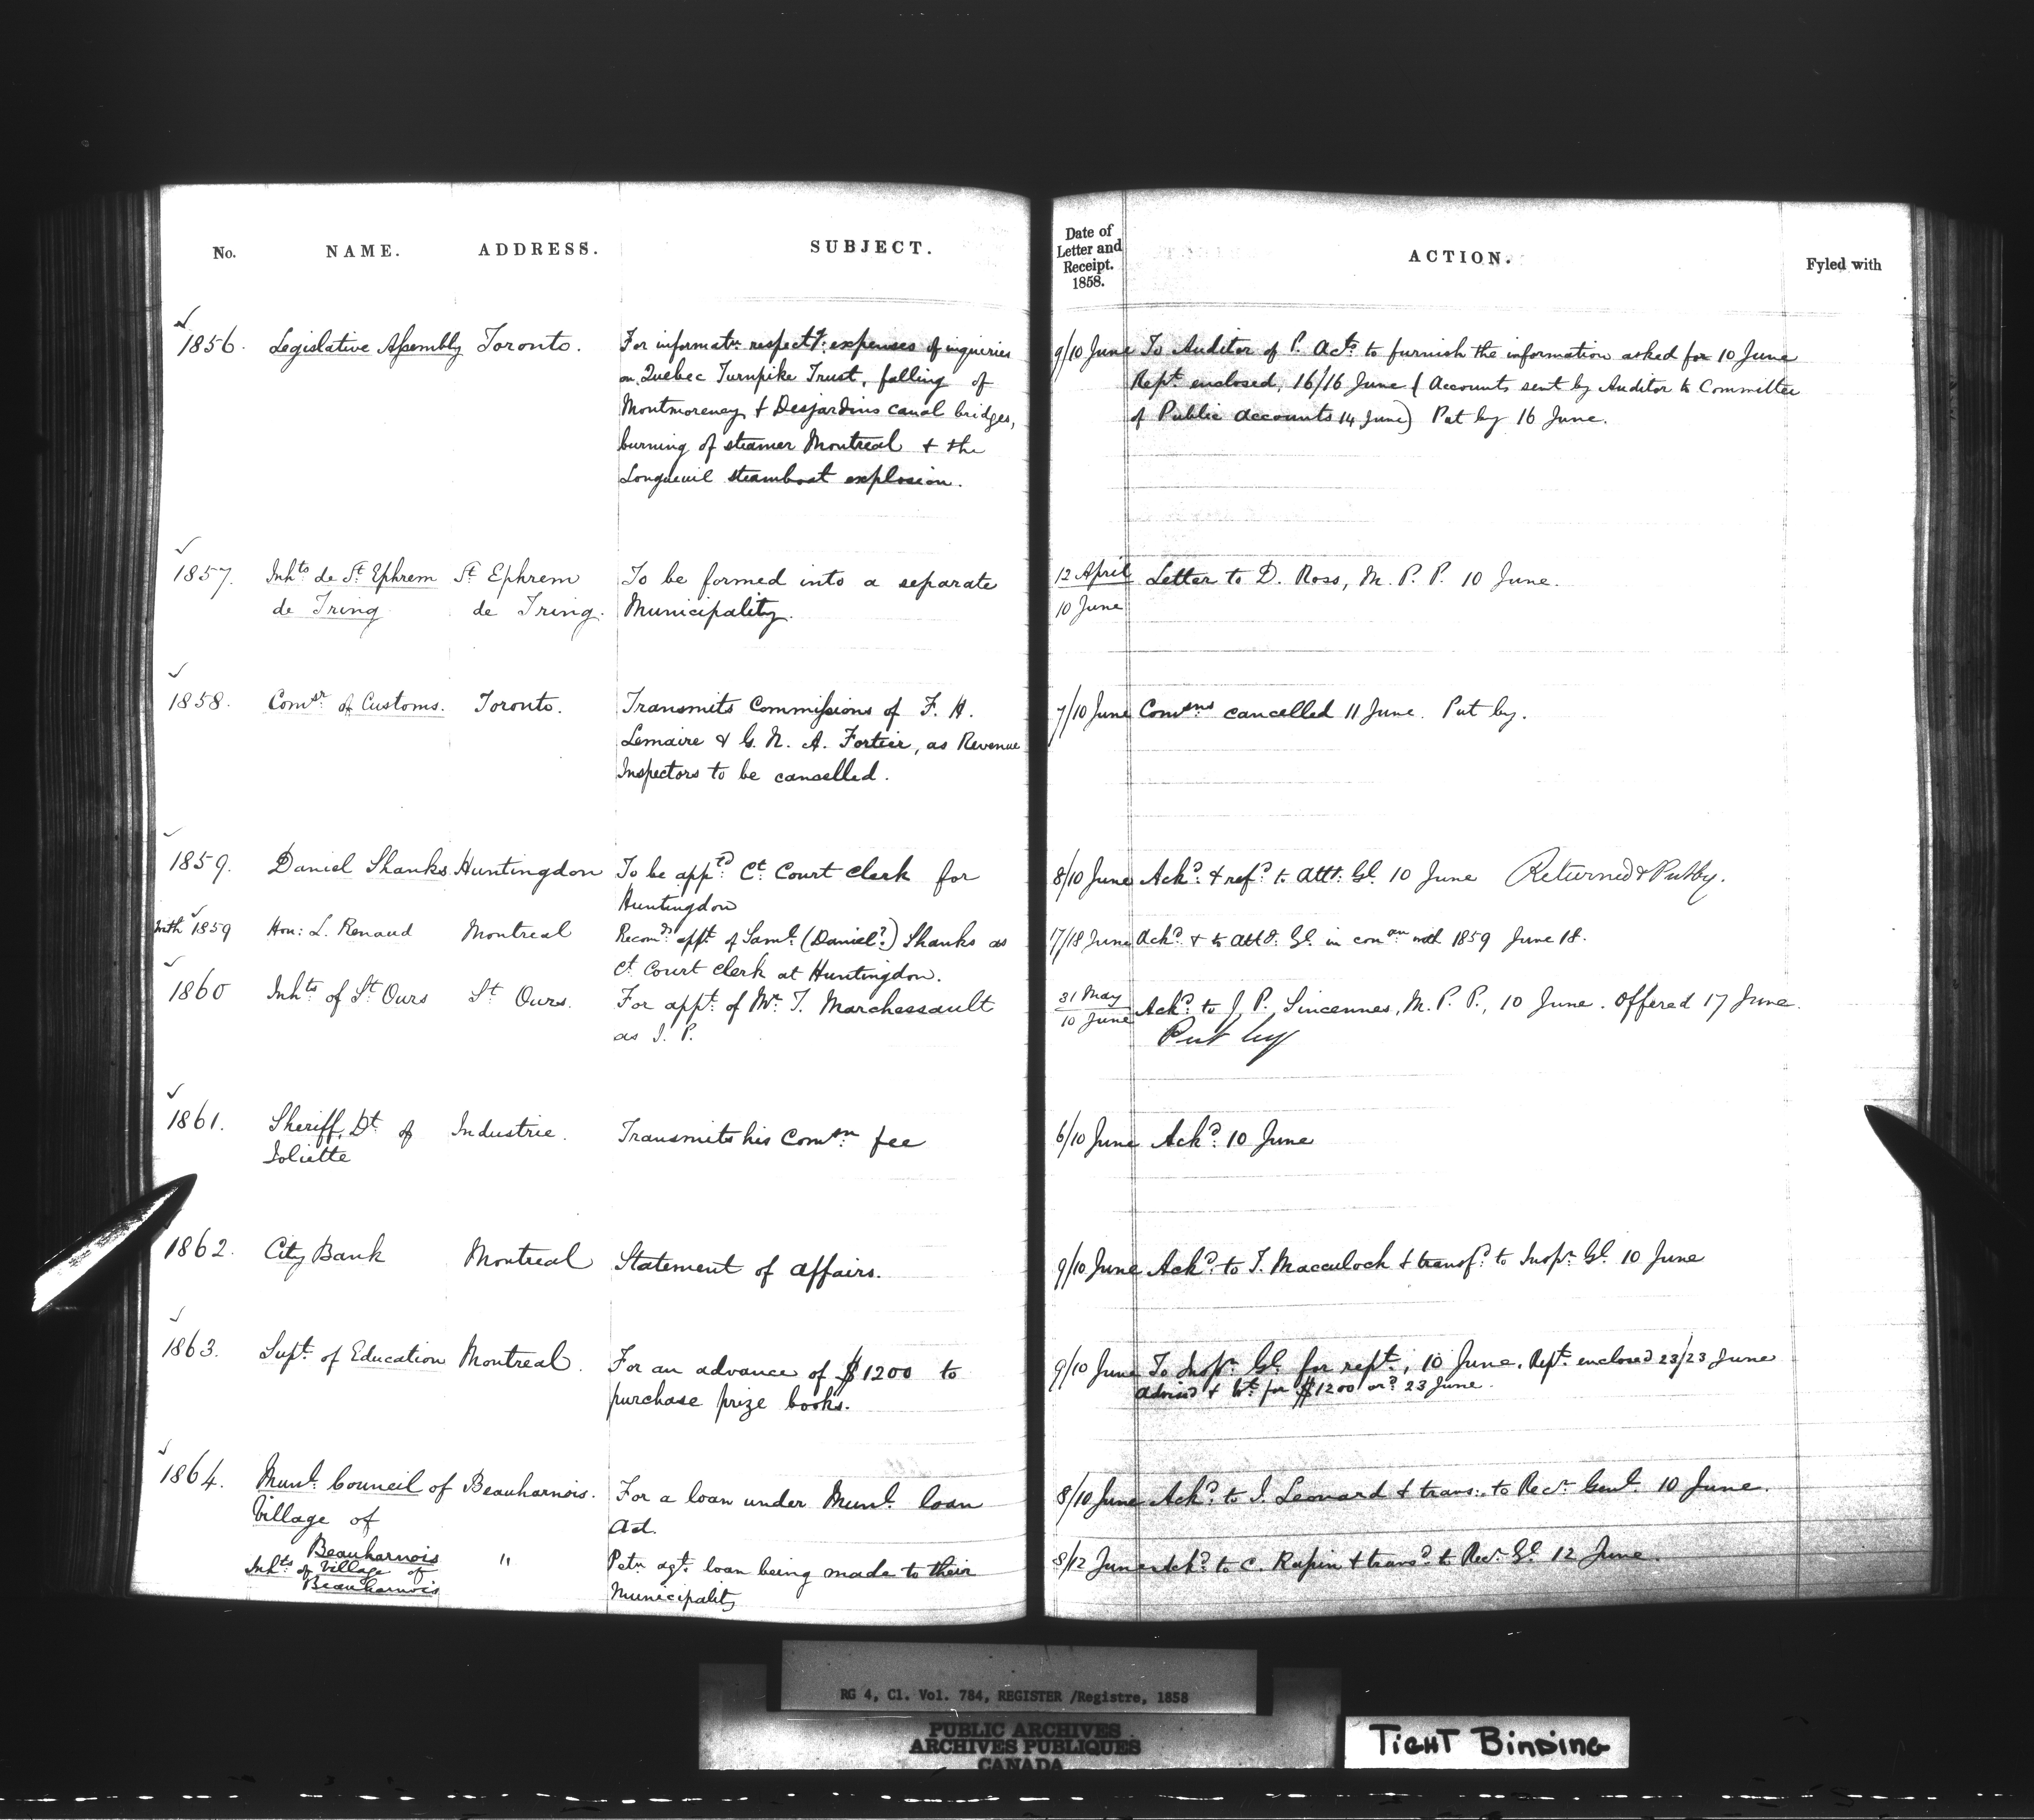 No. NAME. ADDRESS. SUBJECT.
Date of
Letter and
Receipt.
1858.
ACTION.
Fyled with
1856. Legislative Assembly Toronto. For informatn. respectg. expenses of inquiries
on Quebec Turnpike Trust, falling of
Montmorency & Desjardins canal bridges,
burning of steamer Montreal & the
Longueuil steamboat explosion.
9/10 June To Auditor of P. Acts to furnish the information asked for 10 June
Rept. enclosed, 16/16 June (Accounts sent by Auditor to Committee
of Public accounts 14 June) Put by 16 June.
1857. Inhts de St Ephrem St Ephrem To be formed into a separate
de Tring de Tring. Municipality.
12 April Letter to D. Ross, M. P. P. 10 June.
10 June
1858. Comsr. of Customs. Toronto. Transmits Commissions of F. H.
Lemaire & G. N. A. Fortier, as Revenue
Inspectors to be cancelled.
7/10 June Comsns cancelled 11 June. Put by.
1859. Daniel Shanks Huntingdon To be apptd. Ct. Court Clerk for
Huntingdon
8/10 June Ackd. & refd. to Atty. Gl. 10 June Returned & Put by.
with 1859 Hon: L. Renaud Montreal Recomds appt. of Saml. (Daniel?) Shanks as
Ct. Court Clerk at Huntingdon.
17/18 June Ackd. & to Atty. Gl. in conon with 1859 June 18.
1860 Inhts of St Ours St Ours. For appt. of Mr. T. Marchessault
as J. P.
31 May
10 June Ackd. to J. P. Sincennes, M. P. P., 10 June. Offered 17 June.
Put by
1861. Sheriff, Dt. of Industrie. Transmits his Comsn. fee
Joliette
6/10 June Ackd. 10 June
1862. City Bank Montreal Statement of affairs.
9/10 June Ackd. to F. Macculoch & transfd. to Inspr. Gl. 10 June
1863. Supt. of Education Montreal. For an advance of $1200 to
purchase prize books.
9/10 June To Inspr. Gl. for rept., 10 June. Rept. enclosed 23/23 June
Advisd & Wt. for $1200 ord. 23 June.
1864. Munl. Council of Beauharnois. For a loan under Munl. loan
Village of Act.
Beauharnois
8/10 June Ackd. to J. Leonard & trans: to Recr. Genl. 10 June.
Inhts of Village of " Petn. agt. loan being made to their
Beauharnois Municipality
8/12 June Ackd. to C. Rapin & transd. to Recr. Gl. 12 June.
RG 4, Cl. Vol. 784, REGISTER /Registre, 1858
PUBLIC ARCHIVES
ARCHIVES PUBLIQUES
CANADA
TIGHT BINDING